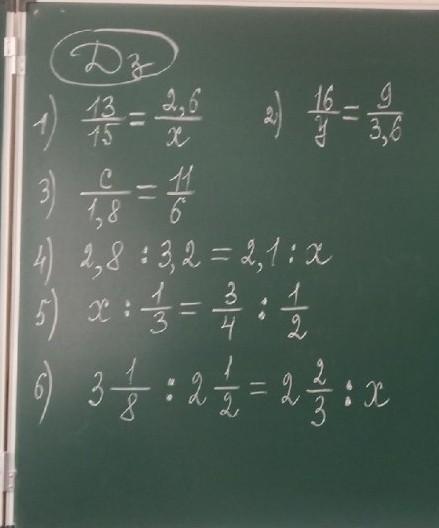 Дз
1) 13/15 = 2,6/x 2) 16/y = 9/3,6
3) c/1,8 = 11/6
4) 2,8 : 3,2 = 2,1 : x
5) x : 1/3 = 3/4 : 1/2
6) 3 1/8 : 2 1/2 = 2 2/3 : x